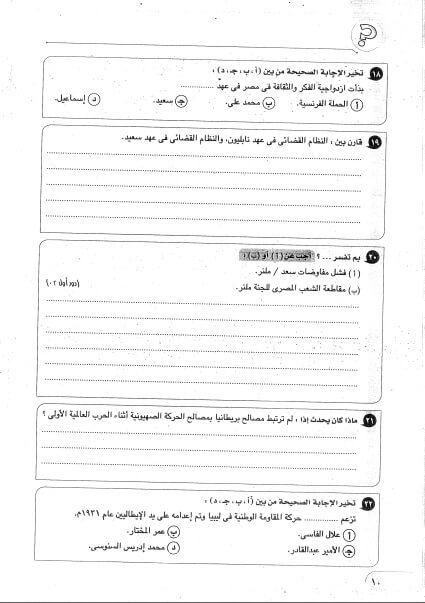 ؟
١٨ تخير الإجابة الصحيحة من بين (أ، ب، جـ، د) :
بدأت ازدواجية الفكر والثقافة فى مصر فى عهد ..............
أ الحملة الفرنسية. ب محمد على. جـ سعيد. د إسماعيل.
١٩ قارن بين : النظام القضائى فى عهد نابليون، والنظام القضائى فى عهد سعيد.
٢٠ بم تفسر ... ؟ أجب عن (أ) أو (ب) :
(أ) فشل مفاوضات سعد / ملنر.
(ب) مقاطعة الشعب المصرى للجنة ملنر. (دور أول ٠٢)
٢١ ماذا كان يحدث إذا : لم ترتبط مصالح بريطانيا بمصالح الحركة الصهيونية أثناء الحرب العالمية الأولى ؟
٢٢ تخير الإجابة الصحيحة من بين (أ، ب، جـ، د) :
تزعم .............. حركة المقاومة الوطنية فى ليبيا وتم إعدامه على يد الإيطاليين عام ١٩٣١م.
أ علال الفاسى. ب عمر المختار.
جـ الأمير عبدالقادر. د محمد إدريس السنوسى.
١٠